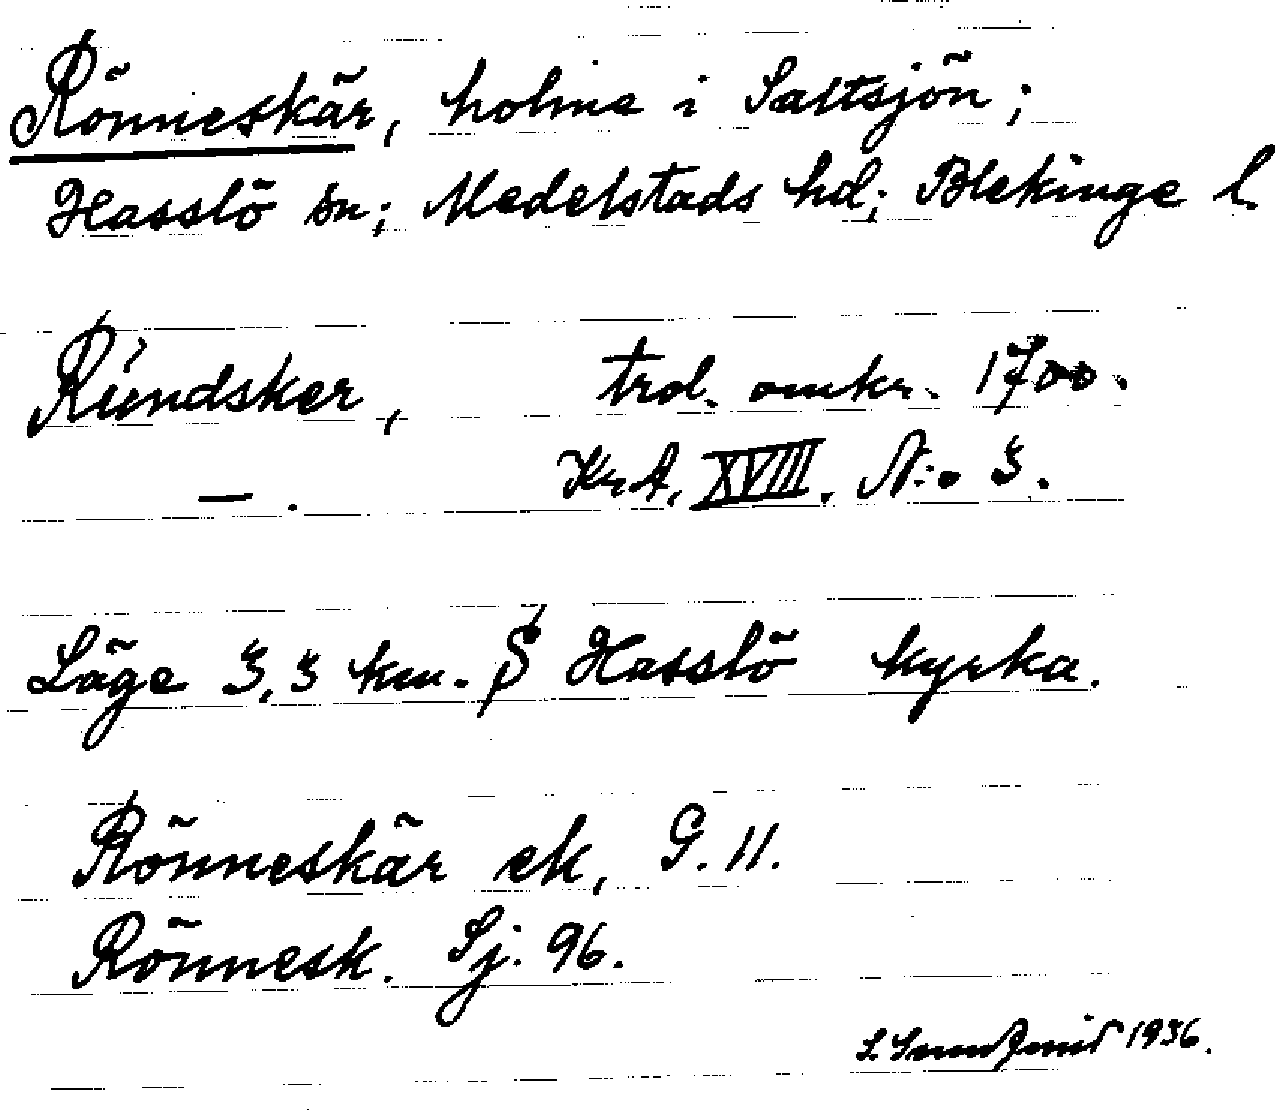 Rönneskär, holme i Saltsjön;
Hasslö sn; Medelstads hd; Blekinge l.
Ründsker, trol. omkr. 1700.
—. Kr.A. XVIII. N:o 3.
Läge 3,3 km. S Hasslö kyrka.
Rönneskär ek, G. 11.
Rönnesk. Sj. 96.
1936.